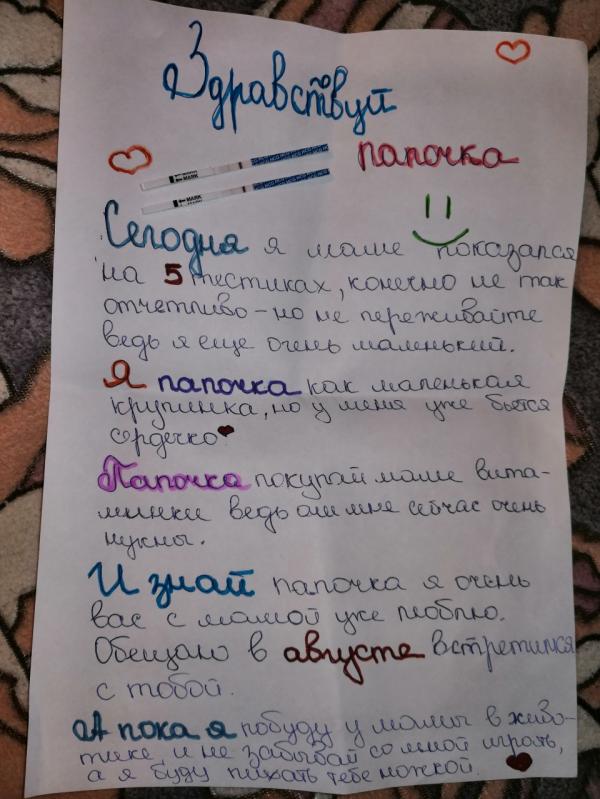 Здравствуй
папочка
Сегодня я маме показался
на 5 тестиках, конечно не так
отчетливо - но не переживайте
ведь я еще очень маленький.
Я папочка как маленькая
крупинка, но у меня уже бьется
сердечко
Папочка покупай маме вита-
минки ведь они мне сейчас очень
нужны.
И знай папочка я очень
вас с мамой уже люблю.
Обещаю в августе встретимся
с тобой.
А пока я побуду у мамы в живо-
тике и не забывай со мной играть,
а я буду пихать тебе ножкой.